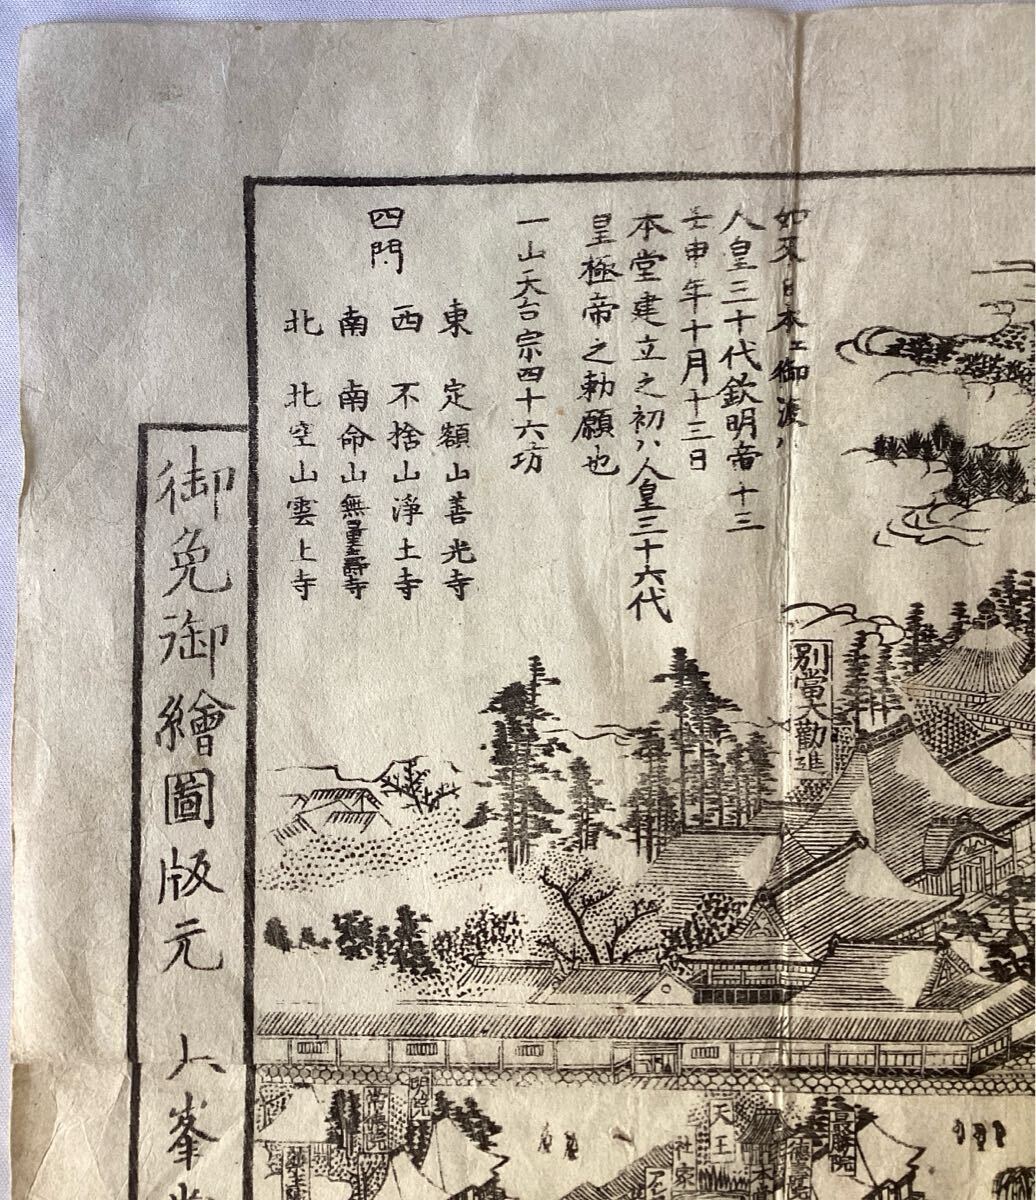 如来日本エ御渡ハ
人皇三十代欽明帝十三
壬申年十月十三日
本堂建立之初ハ人皇三十六代
皇極帝之勅願也
一山天台宗四十六坊
四門
東 定額山善光寺
西 不捨山浄土寺
南 南命山無量壽寺
北 北空山雲上寺
別當大勧進
御免御繪圖版元
天王
社家
最勝院
常徳院